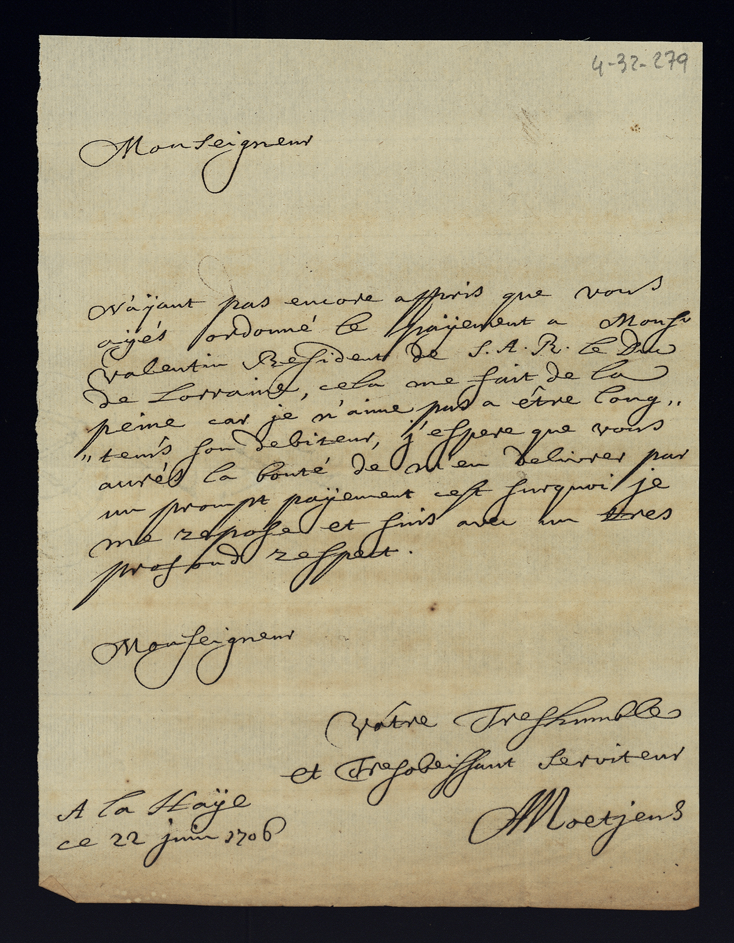 4-32-279
Monseigneur
N'aÿant pas encore appris que vous
aÿés ordonné le païjement a Monsr
Valentin Resident de S. A. R. le Duc
de Lorraine, cela me fait de la
peine car je n'aime pas a être long,,
,,tems son debiteur, j'espere que vous
aurés la bonté de m'en delivrer par
un prompt païjement c'est surquoi je
me repose et suis avec un tres
profond respect.
Monseigneur
Vôtre Treshumble
et Tresobeissant serviteur
AMoetjens
A la Haÿe
ce 22 juin 1706